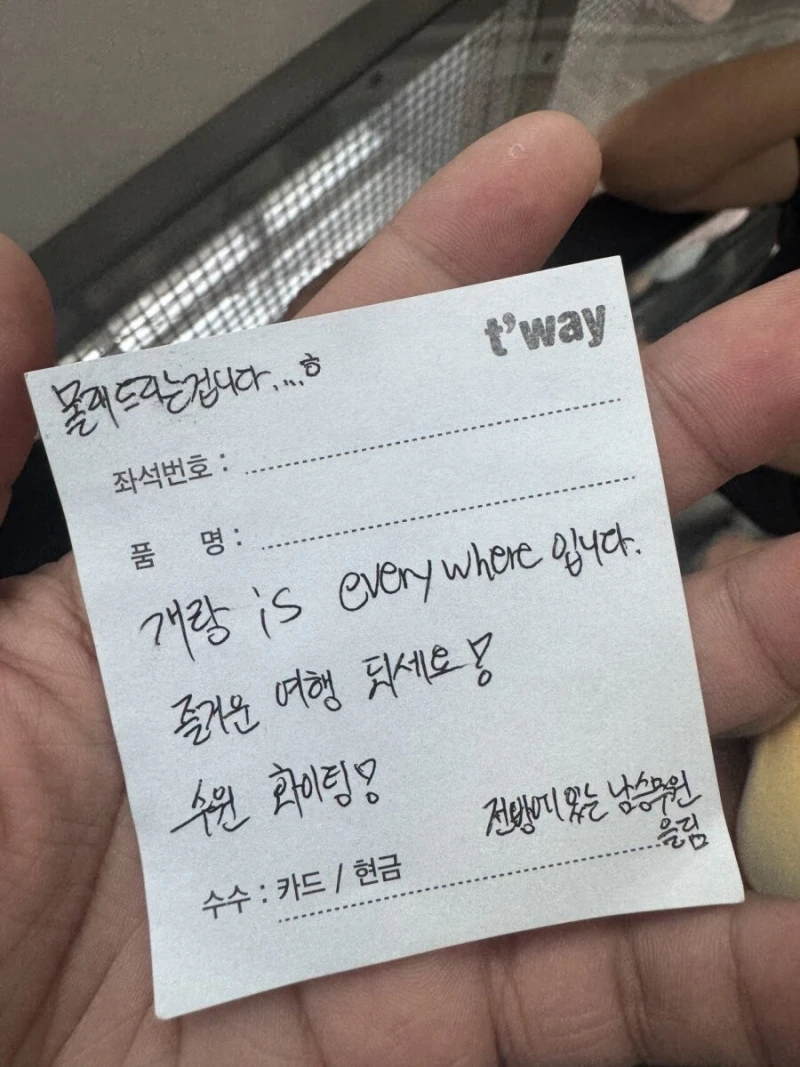 t'way
몰래드리는겁니다....ㅎ
좌석번호 :
품 명 :
개랑 is everywhere 입니다.
즐거운 여행 되세요!
수원 화이팅!
전방에 있는 남승무원
올림
수수 : 카드 / 현금